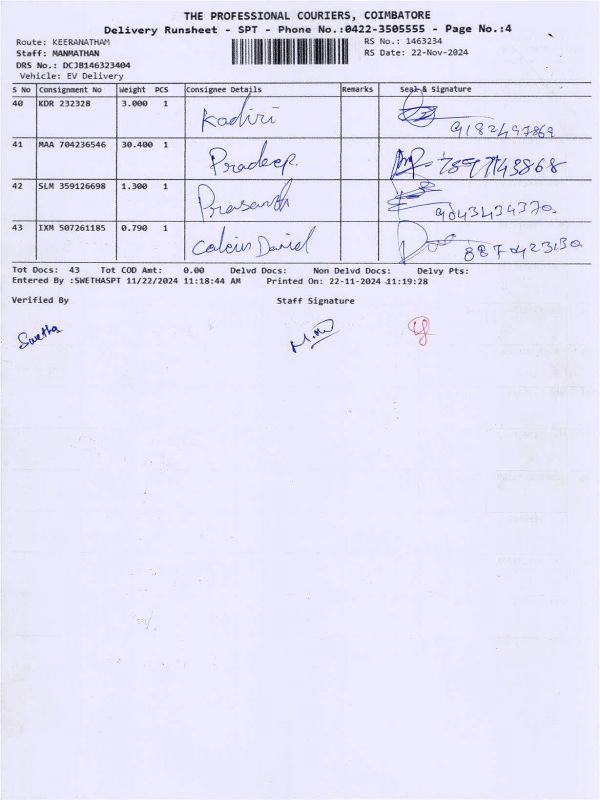 THE PROFESSIONAL COURIERS, COIMBATORE
Delivery Runsheet - SPT - Phone No.:0422-3505555 - Page No.:4
Route: KEERANATHAM RS No.: 1463234
Staff: MANMATHAN RS Date: 22-Nov-2024
DRS No.: DCJB146323404
Vehicle: EV Delivery
S No Consignment No Weight PCS Consignee Details Remarks Seal & Signature
40 KDR 232328 3.000 1 Kadiri
41 MAA 704236546 30.400 1 Pradeep.
42 SLM 359126698 1.300 1 Prasanth 9043434370
43 IXM 507261185 0.790 1 David
Tot Docs: 43 Tot COD Amt: 0.00 Delvd Docs: Non Delvd Docs: Delvy Pts:
Entered By :SWETHASPT 11/22/2024 11:18:44 AM Printed On: 22-11-2024 11:19:28
Verified By Staff Signature
Swetha